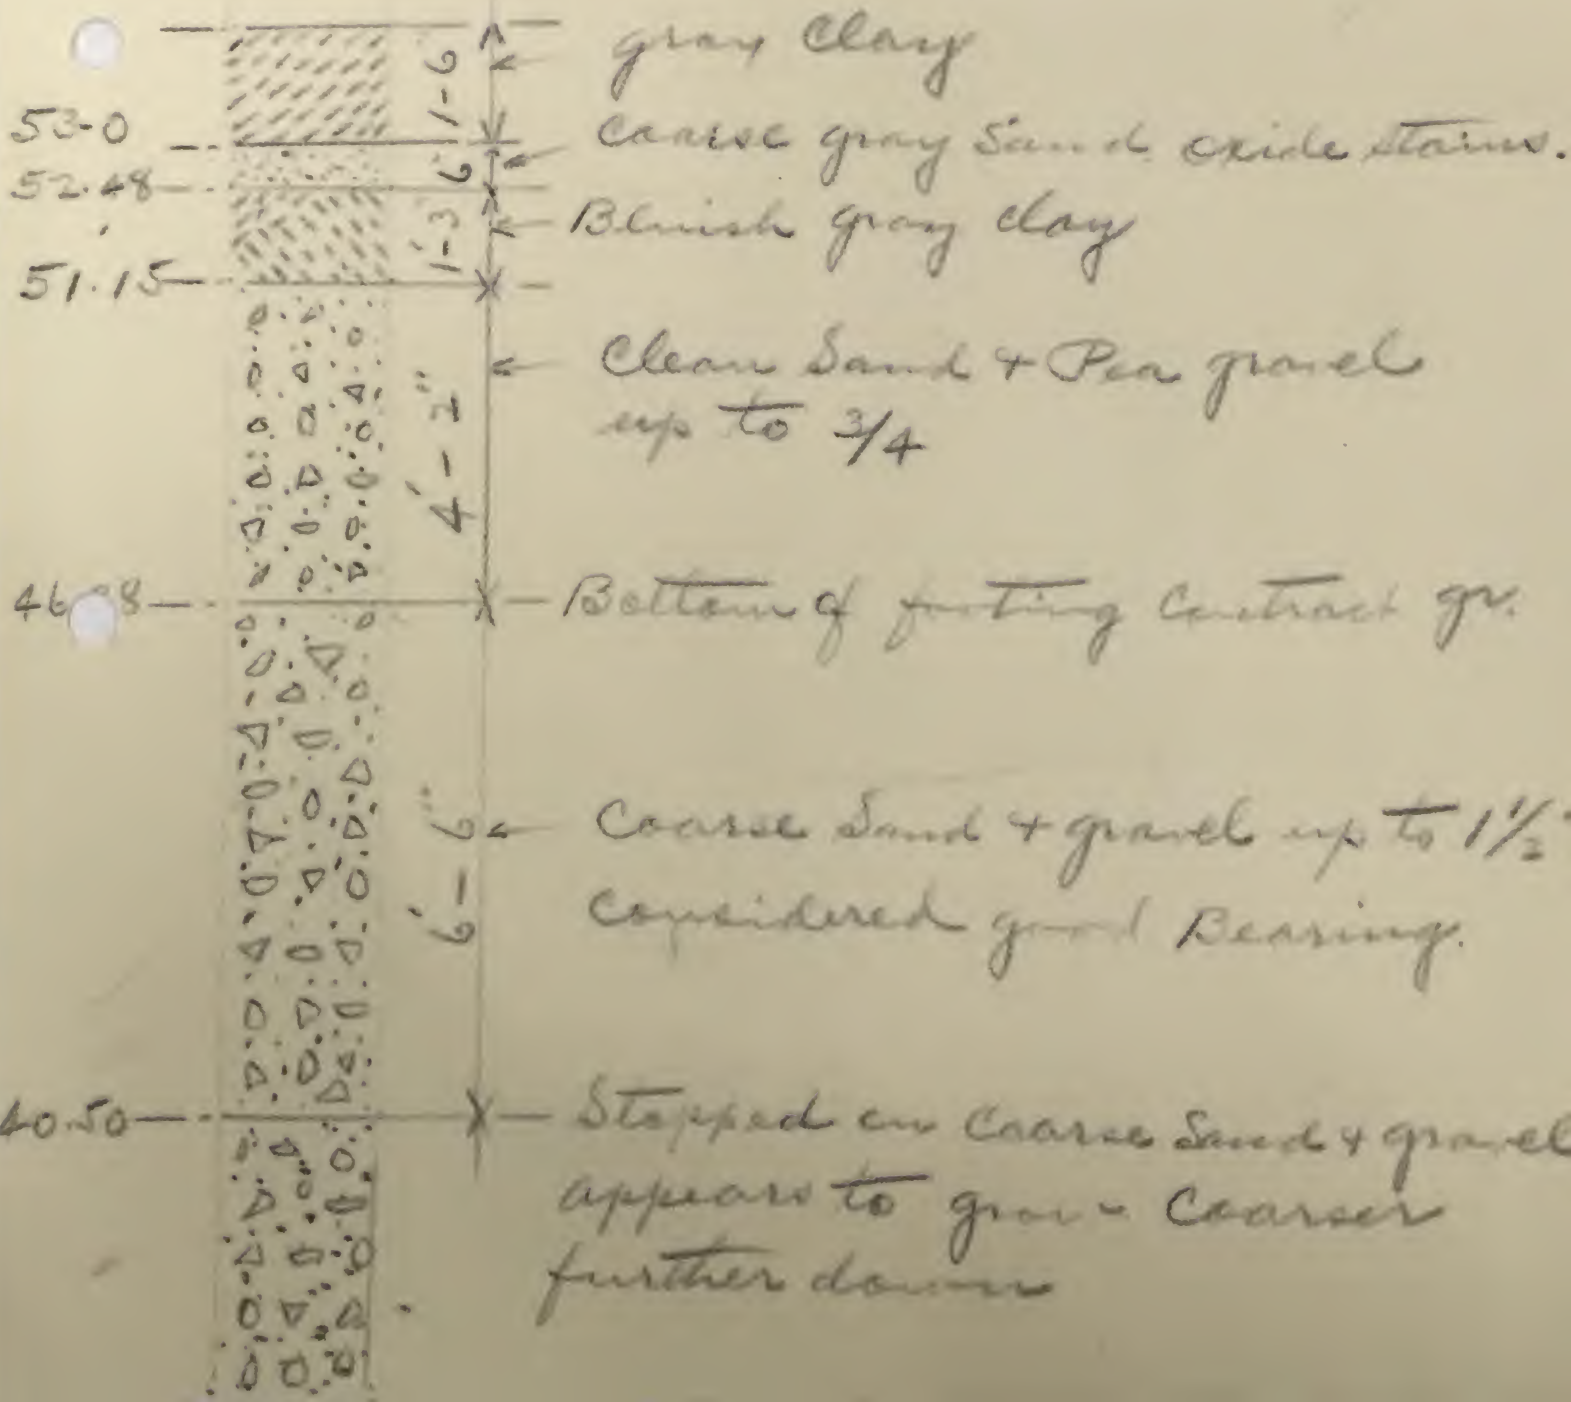 gray Clay
1-6
53-0
coarse gray Sand oxide stains.
6
52.48
Bluish gray clay
1'-3
51.15
Clean Sand + Pea gravel
up to 3/4
4'-2"
Bottom of footing Contract gr.
Coarse Sand + gravel up to 1 1/2"
6'-6"
considered good Bearing.
40.50
Stopped on Coarse Sand + gravel
appears to grow Coarser
further down